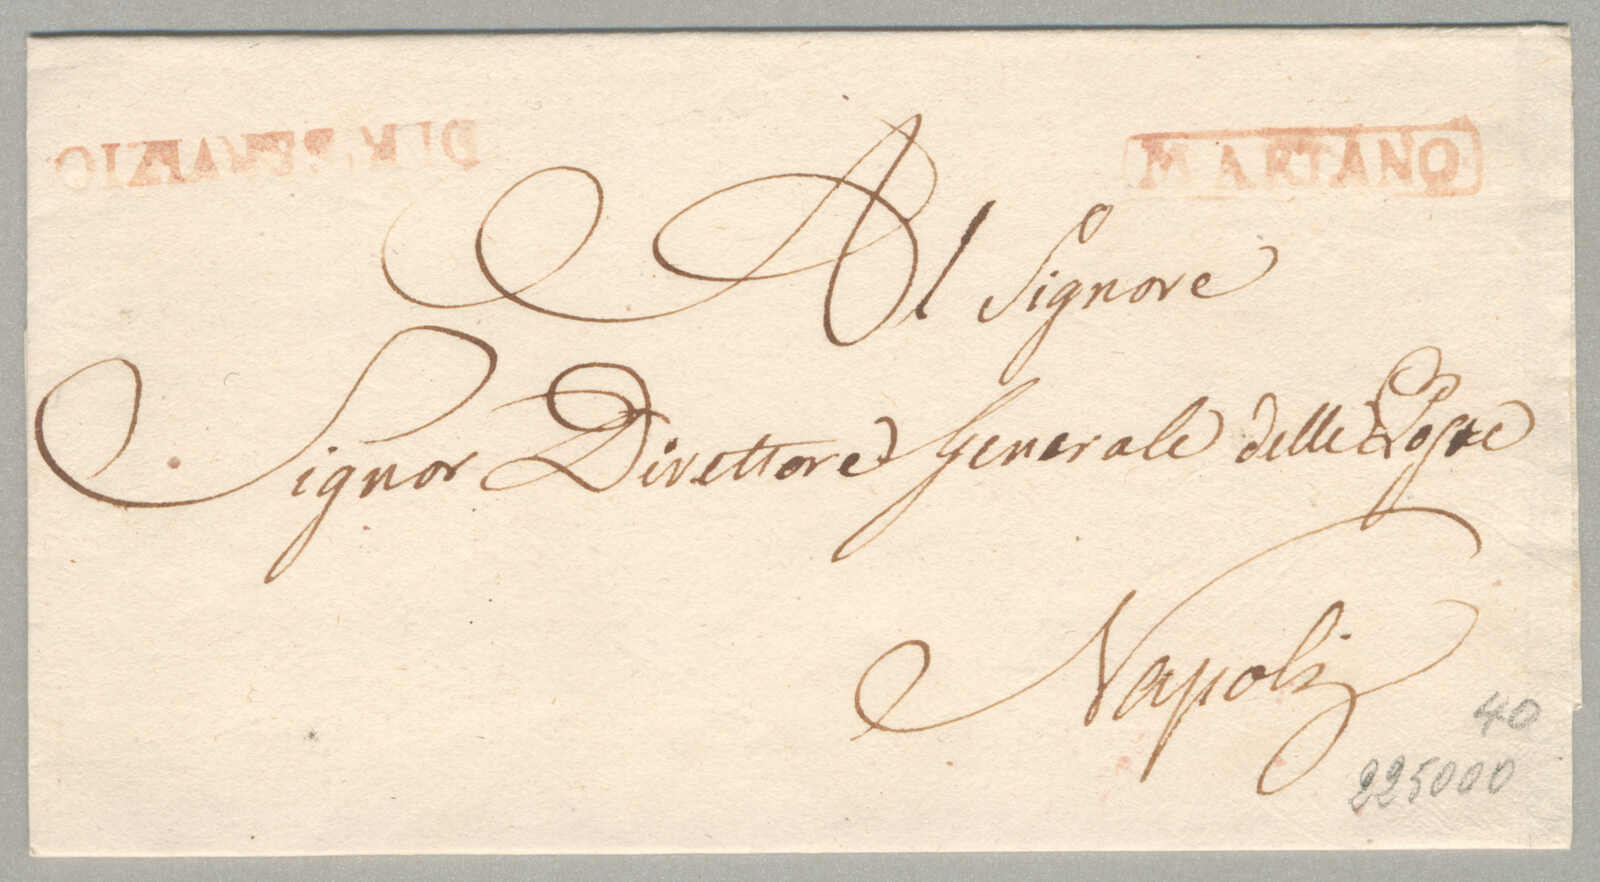 DI R. SERVIZIO
MARTANO
Al Signore
Signor Direttore Generale delle Poste
Napoli
40
225000